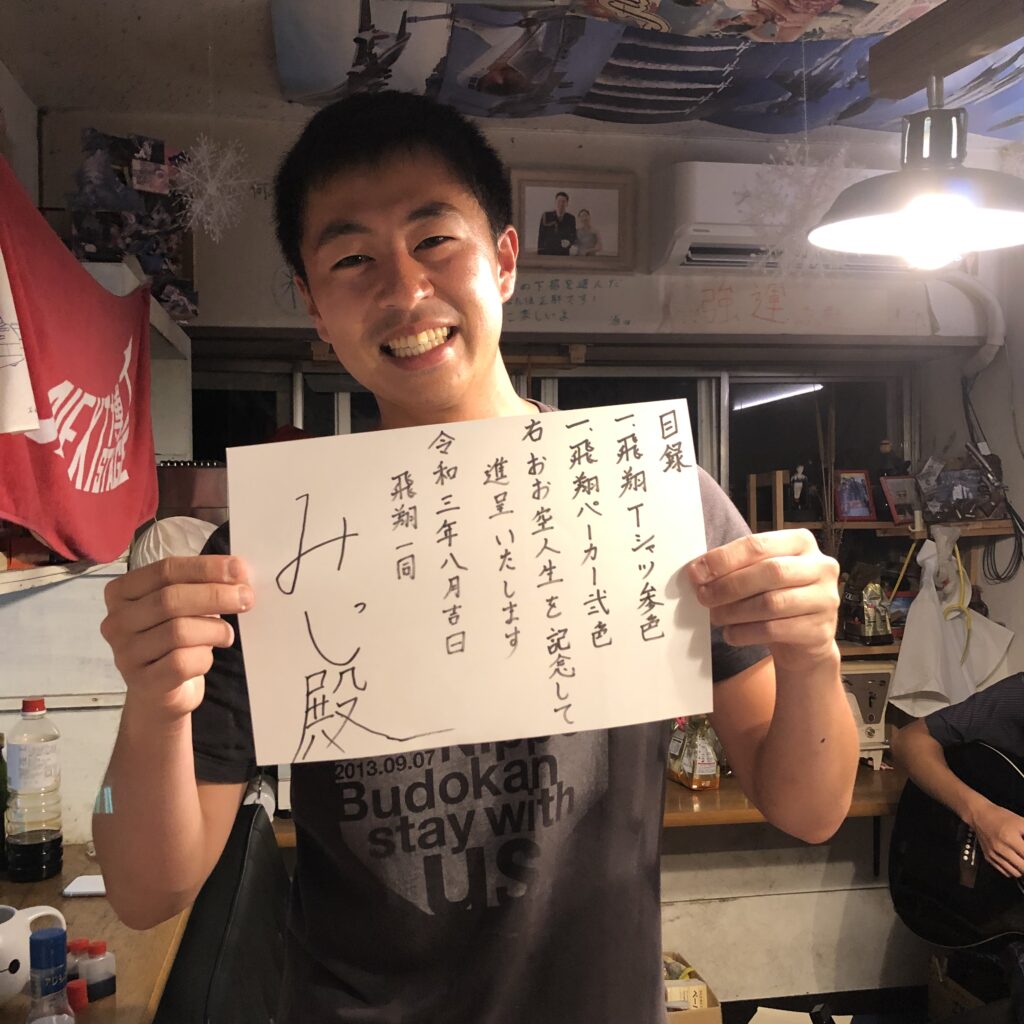 目録
一、飛翔Tシャツ参色
一、飛翔パーカー弐色
右おお空人生を記念して
進呈いたします
令和三年八月吉日
飛翔一同
みっし殿
2013.09.07
Budokan
stay with
us
強運
NEXT
STAGE